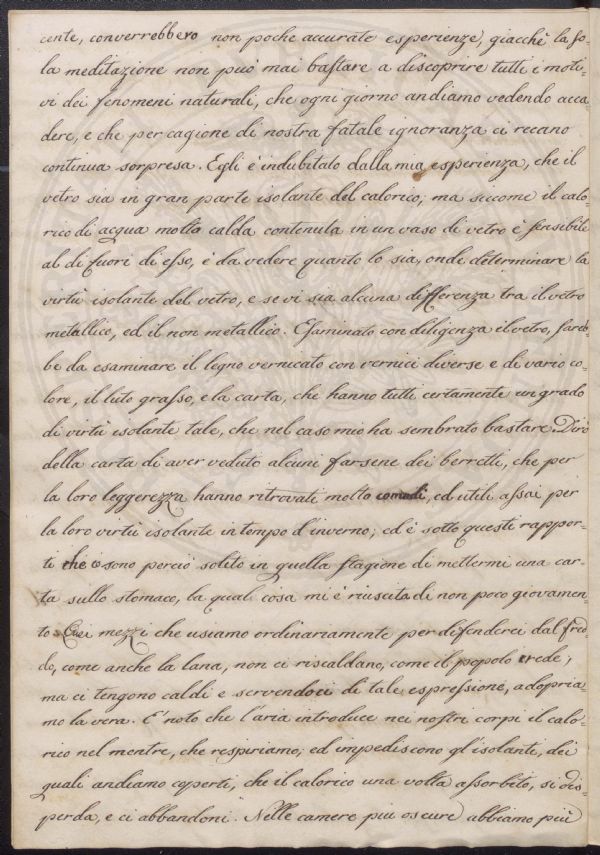 cente, converrebbero non poche accurate esperienze, giacchè la so-
la meditazione non può mai bastare a discoprire tutti i moti-
vi dei fenomeni naturali, che ogni giorno andiamo vedendo acca
dere, e che per cagione di nostra fatale ignoranza ci recano
continua sorpresa. Egli è indubitato dalla mia esperienza, che il
vetro sia in gran parte isolante del calorico; ma siccome il calo-
rico di acqua molto calda contenuta in un vaso di vetro è sensibile
al di fuori di esso, è da vedere quanto lo sia, onde determinare la
virtù isolante del vetro, e se vi sia alcuna differenza tra il vetro
metallico, ed il non metallico. Esaminato con diligenza il vetro, sareb-
be da esaminare il legno vernicato con vernici diverse e di vario co-
lore, il luto grasso, e la carta, che hanno tutti certamente un grado
di virtù isolante tale, che nel caso mio ha sembrato bastare. Dirò
della carta di aver veduto alcuni farsene dei berretti, che per
la loro leggerezza hanno ritrovati molto comodi, ed utili assai per
la loro virtù isolante in tempo d'inverno; ed è sotto questi rappor-
ti che sono perciò solito in quella stagione di mettermi una car-
ta sullo stomaco, la qual cosa mi è riuscita di non poco giovamen-
to. mezzi che usiamo ordinariamente per difenderci dal fred-
do, come anche la lana, non ci riscaldano, come il popolo crede;
ma ci tengono caldi e servendoci di tale espressione, adopria-
mo la vera. E' noto che l'aria introduce nei nostri corpi il calo-
rico nel mentre, che respiriamo; ed impediscono gl'isolanti, dei
quali andiamo coperti, che il calorico una volta assorbito, si dis-
perda, e ci abbandoni. Nelle camere più oscure abbiamo più